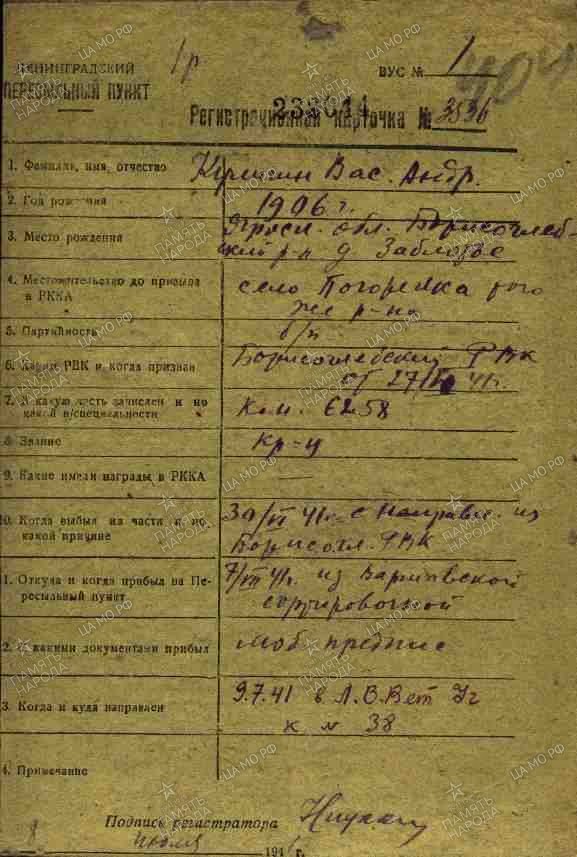 ЛЕНИНГРАДСКИЙ
ПЕРЕСЫЛЬНЫЙ ПУНКТ
1р
ВУС № 1
404
233614
Регистрационная карточка № 3536
1. Фамилия, имя, отчество Вас. Андр.
2. Год рождения 1906 г.
3. Место рождения Яросл. обл. Борисоглеб-
ский р-н д. Заблозье
4. Местожительство до призыва в РККА село Погорелка того
же р-на
5. Партийность б/п
6. Каким РВК и когда призван Борисоглебский РВК
от 27/ 41г.
7. В какую часть зачислен и по какой в/специальности Ком. 6258
8. Звание кр-ц
9. Какие имели награды в РККА —
10. Когда выбыл из части и по какой причине 30/VI 41г. с направл. из
Борисогл. РВК
1. Откуда и когда прибыл на Пересыльный пункт 7/VII 41г. из
сортировочной
2. С какими документами прибыл моб. предпис
3. Когда и куда направлен 9.7.41 в Л. В. Вет
к № 38
4. Примечание
Подпись регистратора
июля 194 г.
ПАМЯТЬ НАРОДА
ЦАМО.РФ